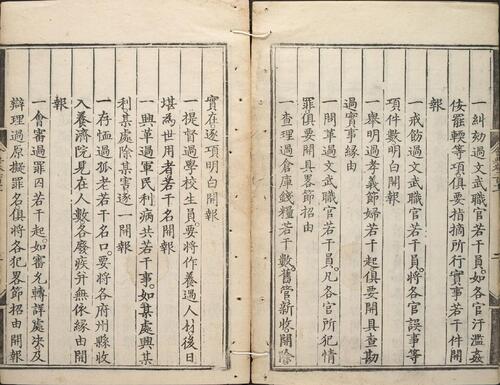 一糾劾過文武職官若干員如各官汙濫姦
佞罷輭等項俱要指摘所行實事若干件開
報
一戒飭過文武職官若干員將各官誤事等
項件數明白開報
一舉明過孝義節婦若干起俱要開具查勘
過實事緣由
一問革過文武職官若干員凡各官所犯情
罪俱要開具畧節招由
一查理過倉庫錢糧若干數舊管新收開除
實在逐項明白開報
一提督過學校生員要將作養過人材後日
堪為世用者若干名開報
一興革過軍民利病共若干事如某處興某
利某處除某害逐一開報
一存恤過孤老若干名口要將各府州縣收
入養濟院見在人數各廢疾并無依緣由開
報
一會審過罪囚若干起如審允轉詳處決及
辯理過原擬罪名俱將各犯畧節招由開報